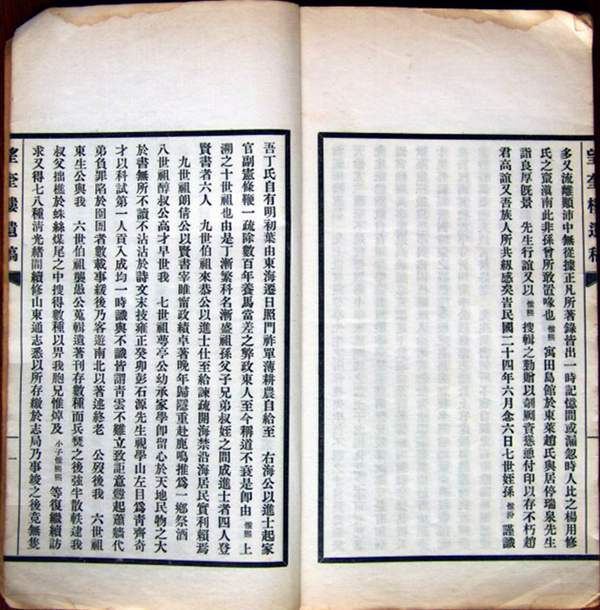 望奎樓遺稿
多又流離顛沛中無從據正凡所著錄皆出一時記憶間或漏忽時人比之楊用修
氏之竄滇南此非孫曾所敢置喙也 惟熙 寓田島館於東萊趙氏與居停瑞泉先生
詣良厚旣景 先生行誼又以 惟熙 搜輯之勤贈以剞劂資慫慂付印以存不朽趙
君高誼又吾族人所共級感矣皆民國二十四年六月念六日七世姪孫 惟汾 謹識
吾丁氏自有明初葉由東海遷日照門祚單薄耕農自給至 右海公以進士起家
官副憲條鞭一疏除數百年養馬當差之弊政東人至今稱道不衰是卽由 惟熙 上
溯之十世祖也由是丁漸繁科名漸盛祖孫父子兄弟叔姪之間成進士者四人登
賢書者六人 九世伯祖來恭公以進士仕至給諫疏開海禁沿海居民實利賴焉
九世祖朗倩公以賢書宰睢甯政績卓著晚年歸隱重赴鹿鳴推爲一鄉祭酒
八世祖醇叔公高才早世我 七世祖夢亭公幼承家學卽留心於天地民物之大
於書無所不讀不沾沾於詩文末技雍正癸卯彭石源先生視學山左目爲靑齊奇
才以科試第一人貢入成均一時識與不識皆謂靑雲不難立致詎意釁起蕭牆代
弟負罪陷於囹圄者數載事緩後乃客遊南北以著述終老 公歿後我 六世祖
東生公與我 六世伯祖襲愚公蒐輯遺著刊存數種而兵燹之後強半散軼逮我
叔父拙樵於蛛絲煤尾之中搜得數種以畀我胞兄惟焯及 小子惟熙 等復繼續訪
求又得七八種淸光緖間續修山東通志悉以所存繳於志局乃事竣之後竟無隻
望奎樓遺稿
一